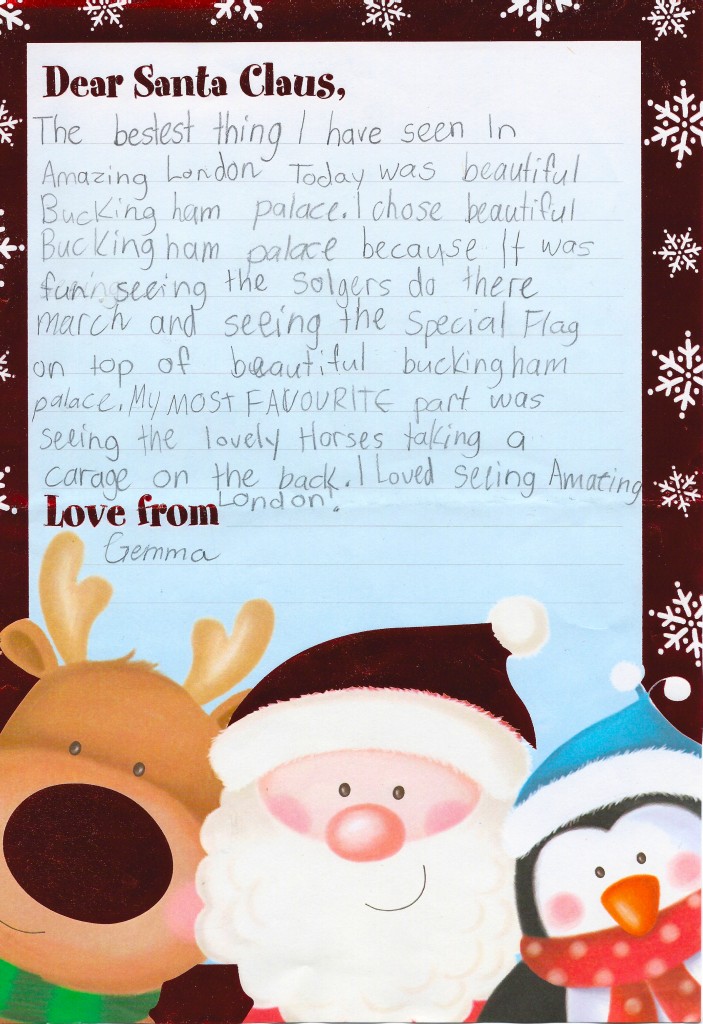 Dear Santa Claus,
The bestest thing I have seen In
Amazing London Today was beautiful
Bucking ham palace. I chose beautiful
Buckingham palace because It was
seeing the Solgers do there
march and seeing the Special Flag
on top of beautiful buckingham
palace. My MOST FAVOURITE part was
seeing the lovely Horses taking a
carage on the back. I Loved seeing Amazing
London!
Love from
Gemma